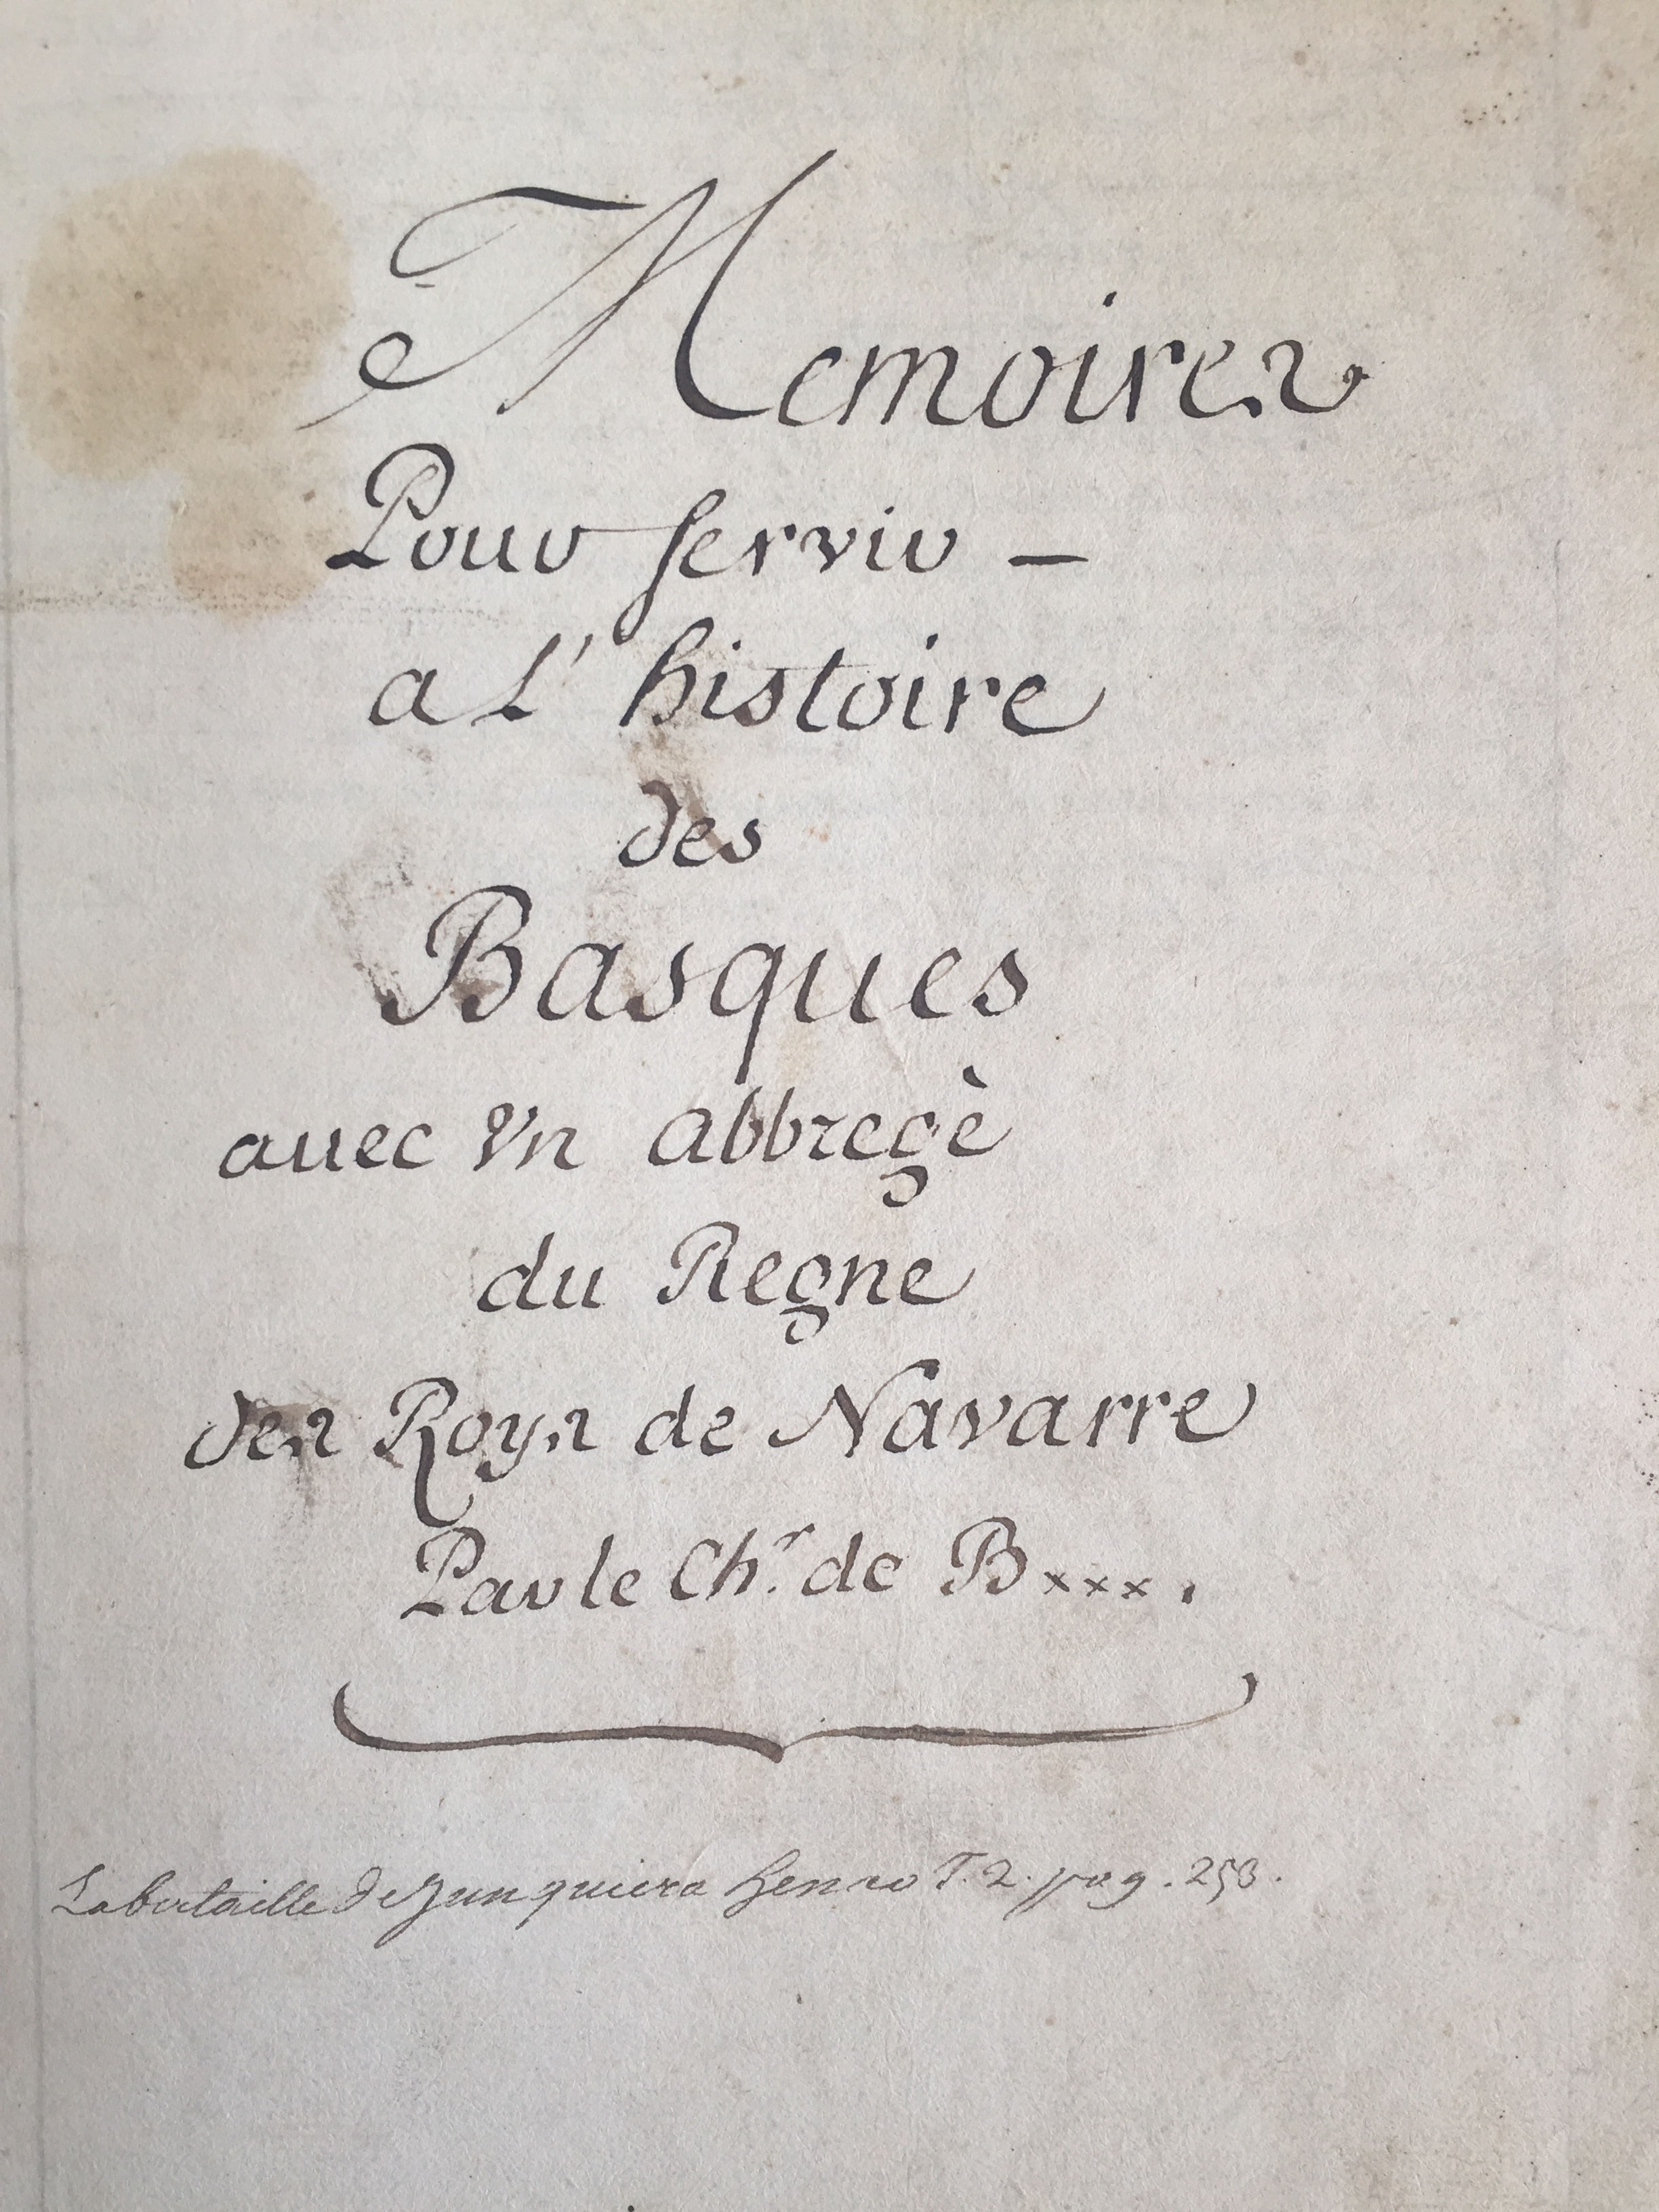 Memoires
Pour servir -
a L'histoire
des
Basques
auec Vn abbregè
du Regne
des Roys de Navarre
Par le Chr. de B×××.
La bataille de Junquiera T. 2. pag. 253.